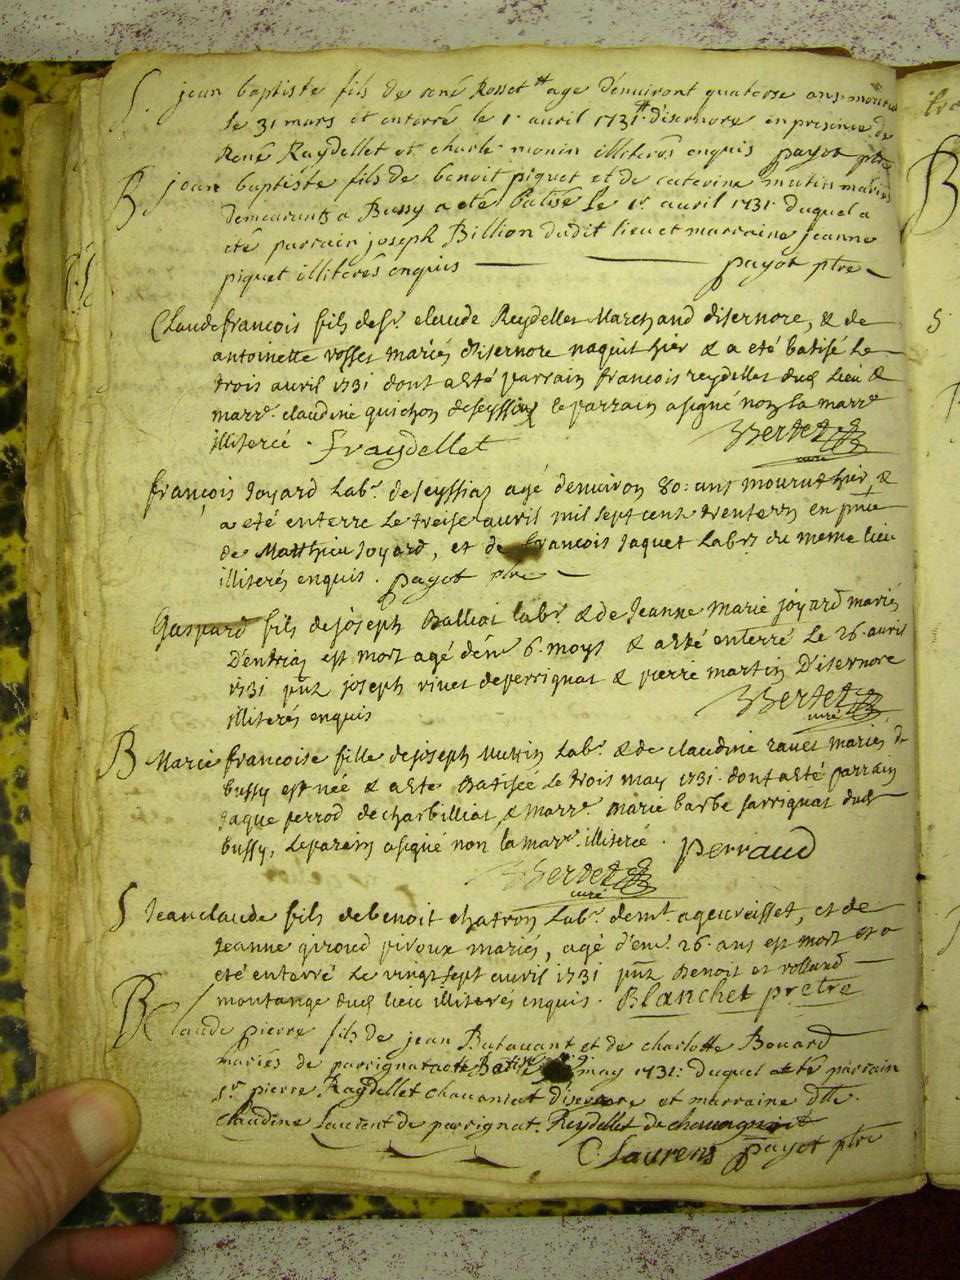 S. jean baptiste fils de rené Rosset # age d'enuiront quatorse ans mouru
le 31 mars et enterré le 1r auril 1731 # d'isernore en presence de
René Raydellet et charle monin illiterés enquis payot ptre
B. jean baptiste fils de benoit piquet et de caterine mutin mariés
demeurants a Bussy a eté batisé le 1r auril 1731 duquel a
eté parrain joseph Billion dudit lieu et marraine jeanne
piquet illiterés enquis payot ptre
Claude françois fils de sr. claude Reydellet Marchand disernore, & de
antoinette rosset mariés disernore naquit hier & a eté batisé le
trois auril 1731 dont a eté parrain françois reydellet dud lieu &
marre. claudine guichon de seyssia le parrain a signé non la marre
illiteree . fraydellet Bertet
curé
françois Joyard labr. de seyssias agé denuiron 80: ans mourut hier, &
a eté enterre le treise auril mil sept cent trente un en pnce
de Matthieu Joyard, et de françois Jaquet labrs du meme lieu
illiterés enquis . payot ptre
Gaspard fils de joseph Balliat labr. & de Jeanne Marie joyard mariés
D'entria est mort agé denv 6. moys & a eté enterré le 26. auril
1731 pnt joseph viuet de perrignat & pierre martin D'isernore
illiterés enquis Bertet
curé
B Marie francoise fille de joseph Mutin labr. & de claudine rauet mariés de
bussy est née & a eté Batisée le trois may 1731. dont a eté parrain
Jaque perrod de charbilliat & marre. marie barbe sarrignat dud
bussy, le parain a signé non la marre. illiteree . perraud
Bertet
curé
S Jean claude fils de benoit chatron labr. demt. a geureisset, et de
Jeanne giroud piroux mariés, agé d'enn. 26. ans est mort et a
eté enterré le vingt sept auril 1731 pnt Benoit et rolland
montange dud lieu illiterés enquis . Blanchet prêtre
B Claude pierre fils de jean Batauant et de charlotte Bouard
mariés de parrignat a eté Batisé may 1731: duquel a eté parrain
sr. pierre Raydellet chauaniat disernore et marraine dlle.
claudine Laurent de parrignat. Reydellet de
C Laurens payot ptre